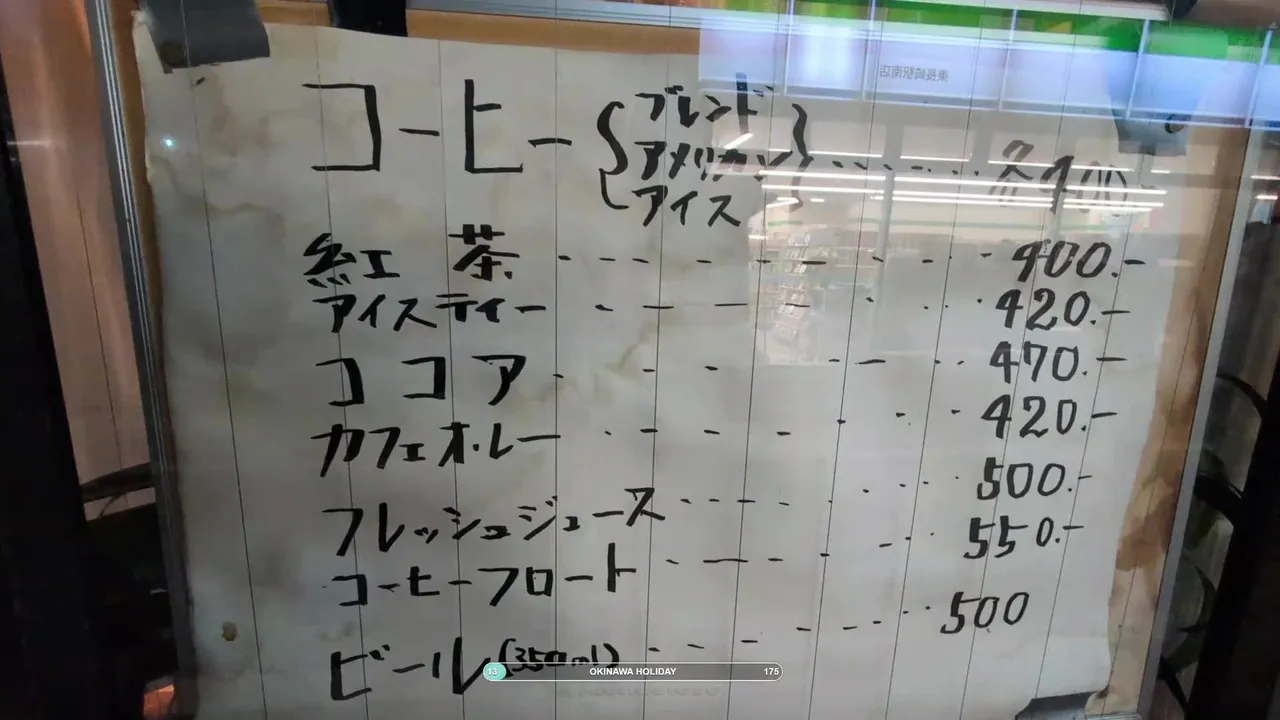 東長崎駅南店
コーヒー{ブレンド
アメリカン
アイス}........各400-
紅茶.--------..400.-
アイスティー-------...420.-
ココア.--.--..470.-
カフェオ・レー.----.--.420.-
フレッシュジュース-----....500.-
コーヒーフロート.--.--.550.-
ビール(350ml)------..500
13 OKINAWA HOLIDAY 175